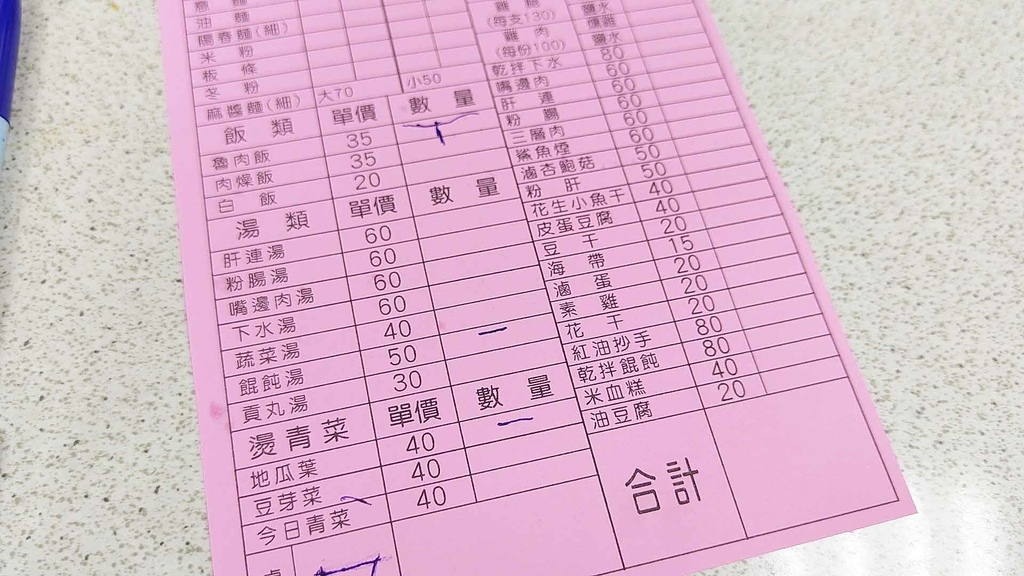 油 麵
陽春麵(細)
米 粉
板 條
冬 粉
麻醬麵(細) 大70 小50
飯 類 單價 數 量
魯肉飯 35
肉燥飯 35
白 飯 20
湯 類 單價 數 量
肝連湯 60
粉腸湯 60
嘴邊肉湯 60
下水湯 60
蔬菜湯 40
餛飩湯 50
貢丸湯 30
燙青菜 單價 數 量
地瓜葉 40
豆芽菜 40
今日青菜 40
(每支130) 鹽水
雞 肉
(每份100) 鹽水
乾拌下水 80
嘴邊肉 60
肝 連 60
粉 腸 60
三層肉 60
鯊魚煙 60
滷杏鮑菇 50
粉 肝 50
花生小魚干 40
皮蛋豆腐 40
豆 干 20
海 帶 15
滷 蛋 20
素 雞 20
花 干 20
紅油抄手 80
乾拌餛飩 80
米血糕 40
油豆腐 20
合計